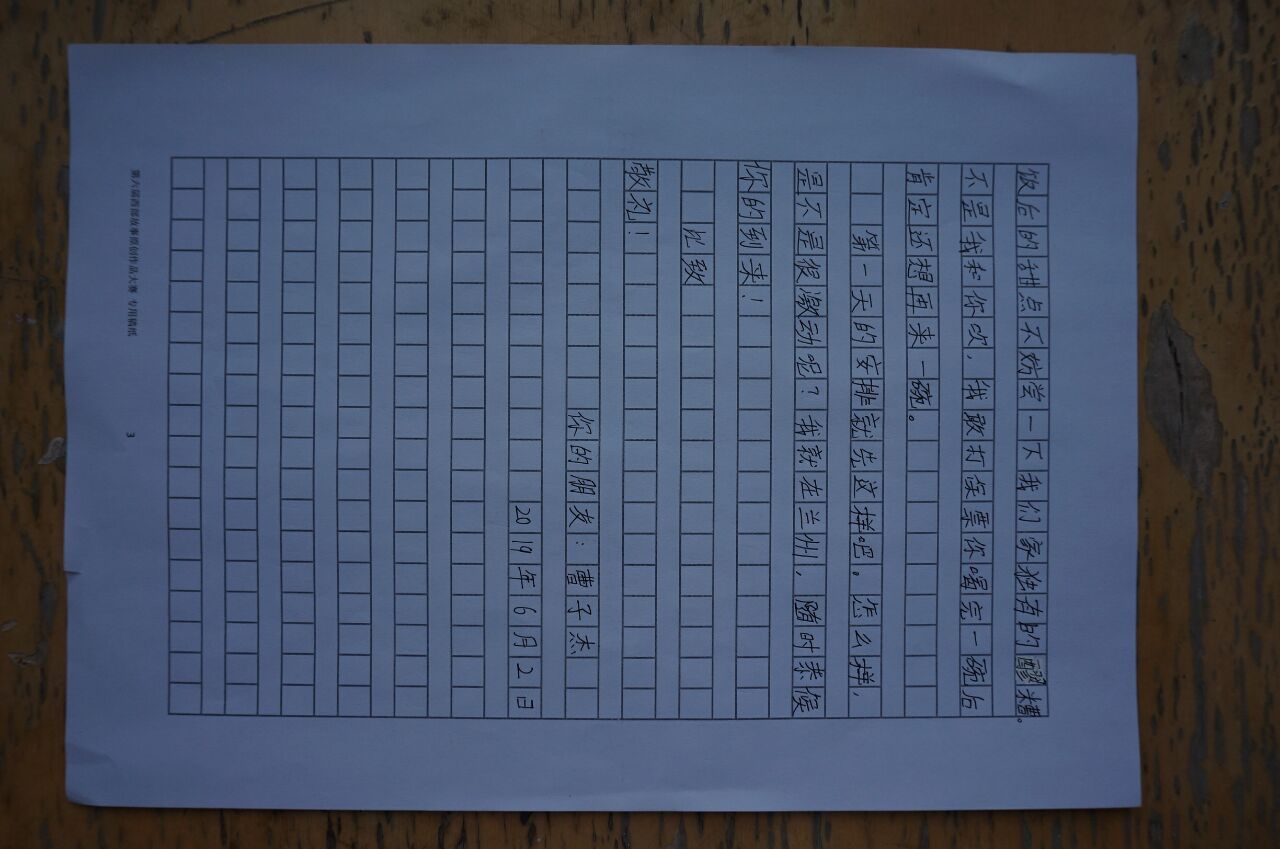 饭后的甜点不妨尝一下我们家独有的醪糟。
不是我和你吹，我敢打保票你喝完一碗后
肯定还想再来一碗。
第一天的安排就先这样吧。怎么样，
是不是很激动呢？我就在兰州，随时恭候
你的到来！
此致
敬礼！
你的朋友：曹子杰
2019年6月2日
第六届西部故事原创作品大赛 专用稿纸
3